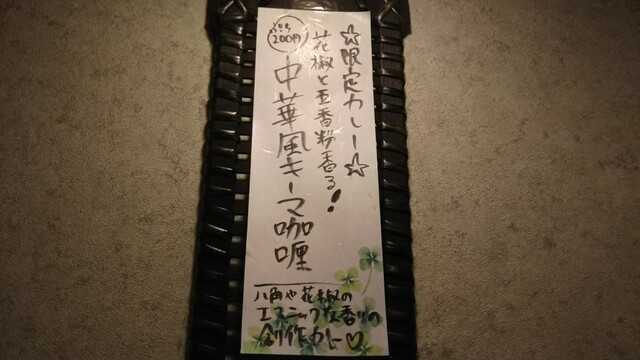 ☆限定カレー☆
花椒と五香粉香る!
中華風キーマ咖喱
200円
八角や花椒の
エスニックな香りの
創作カレー♡